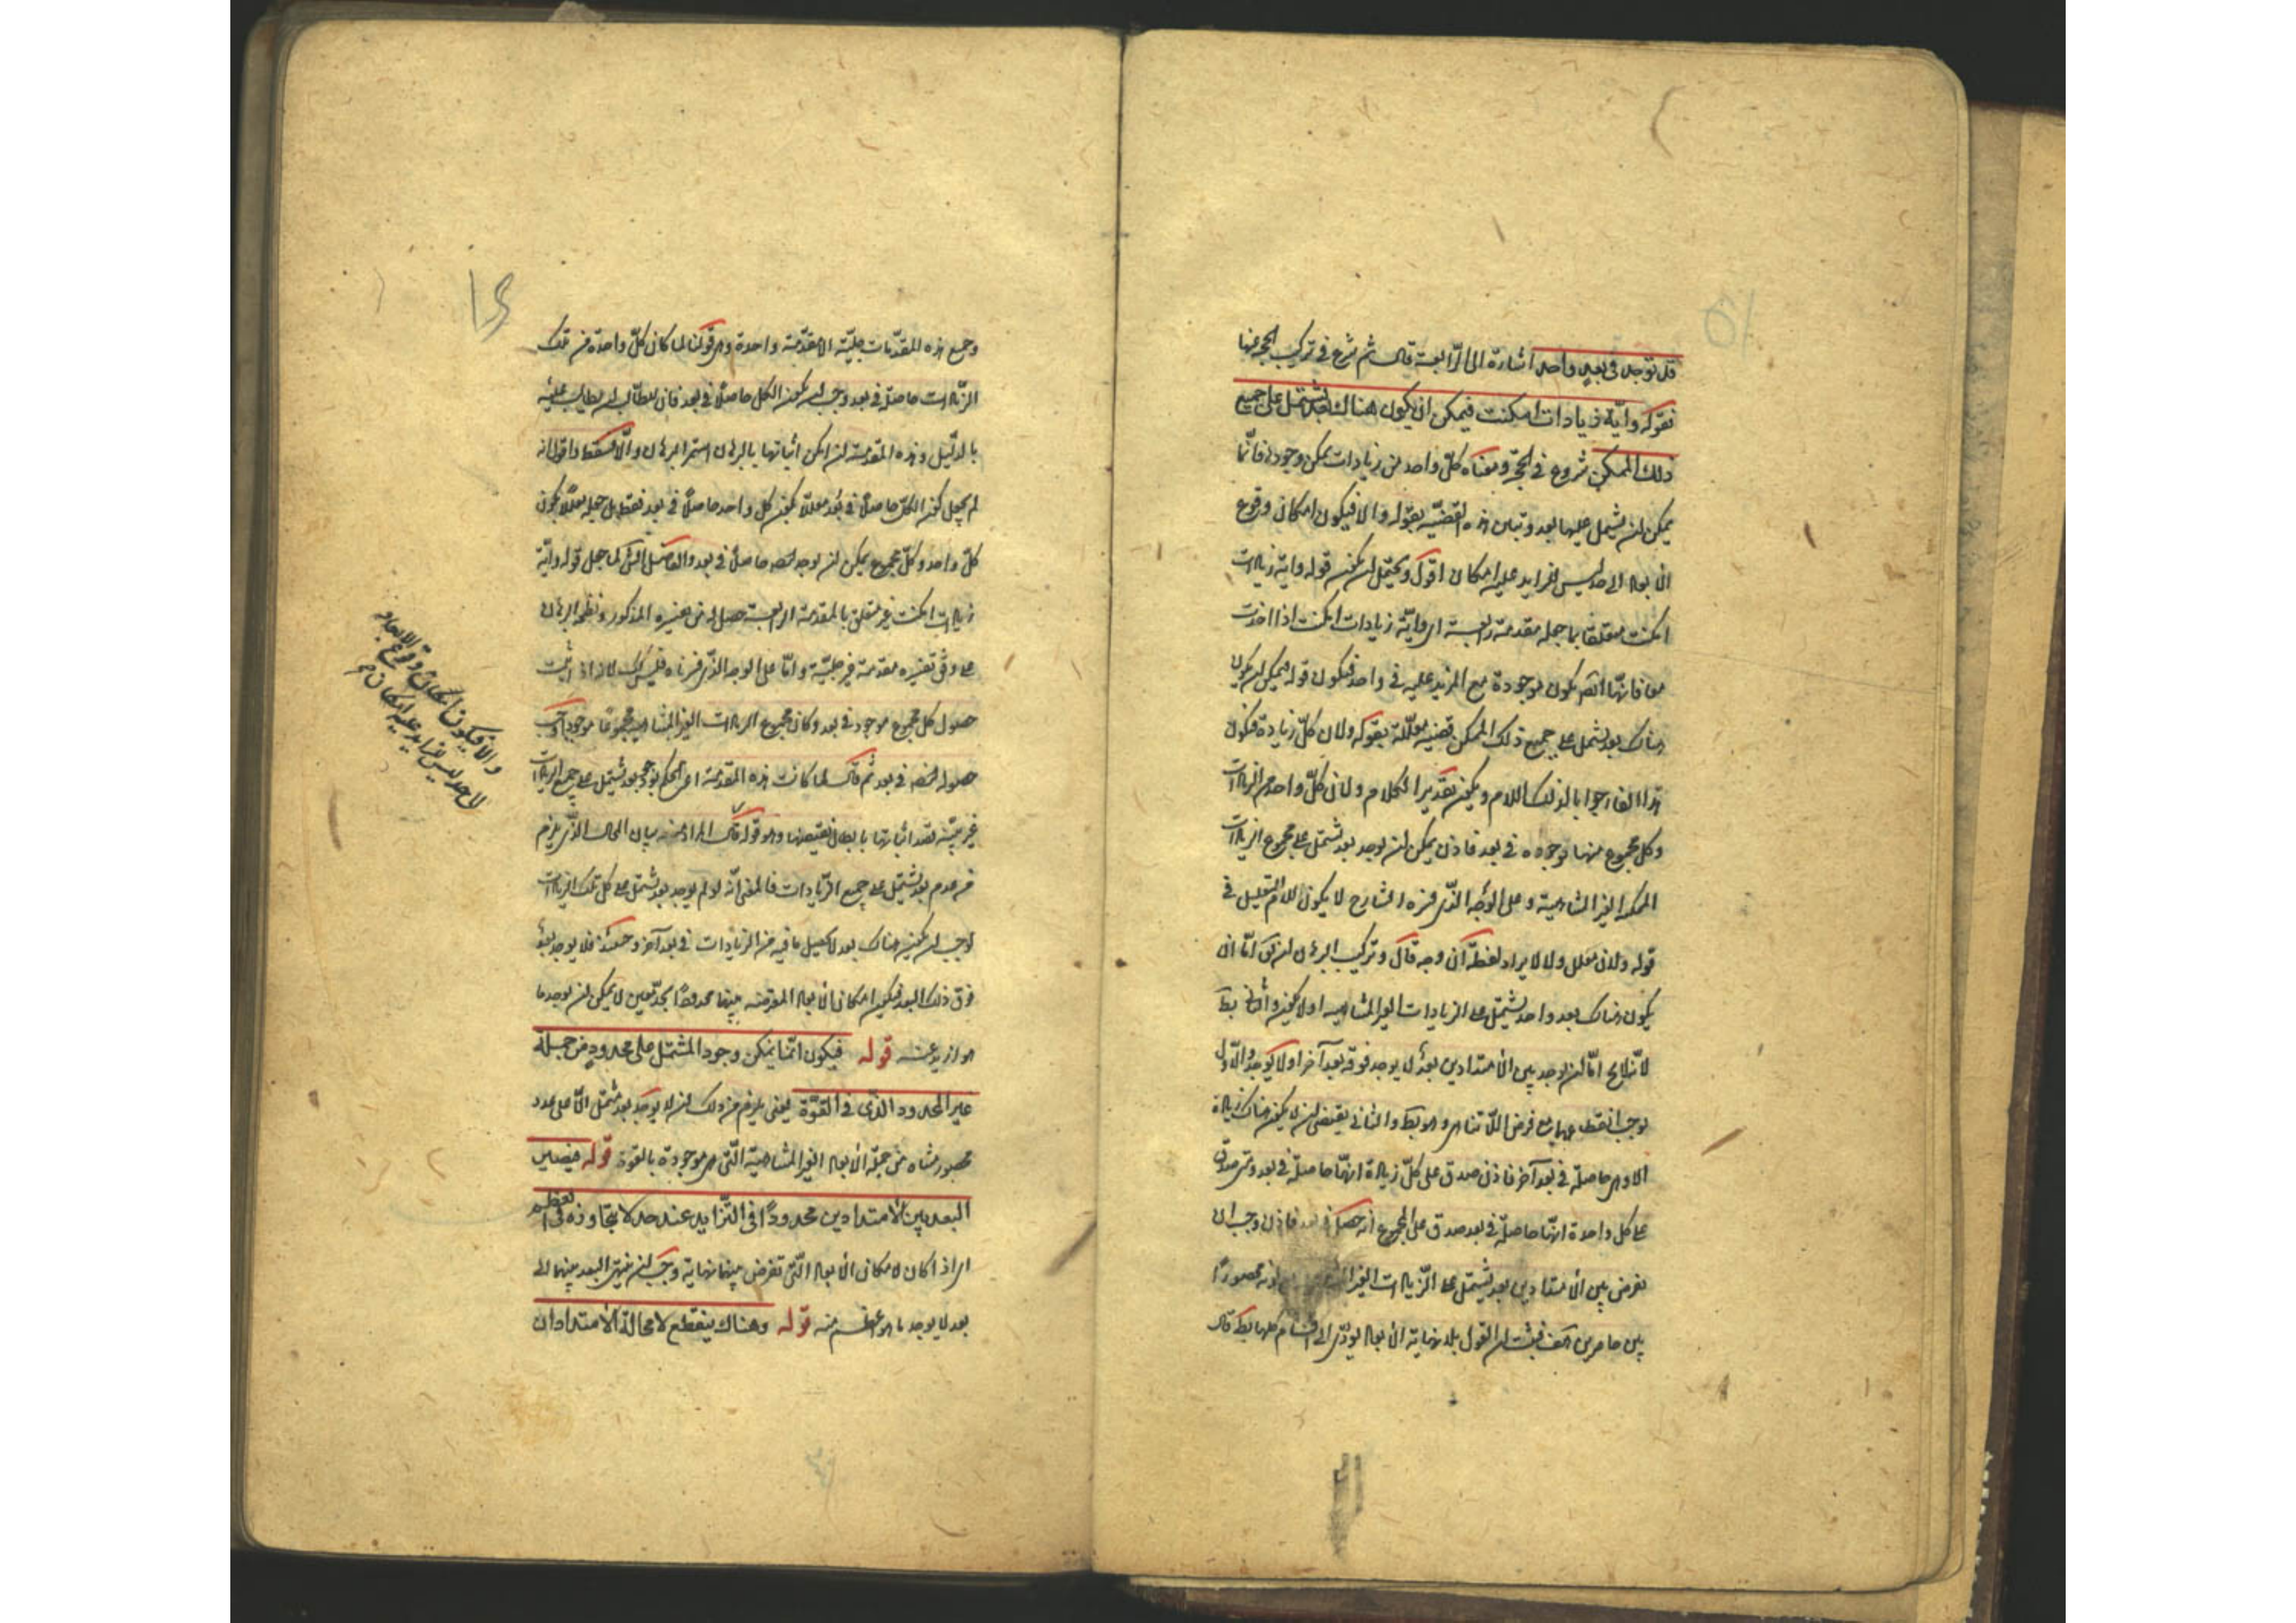 قد توجد فى بعد واحد اشارة الى الرابعة قال ثم شرع فى تركيب الحجة منها
بقوله واية زيادات امكنت فيمكن ان يكون هناك بعد يشتمل على جميع
ذلك الممكن شروع فى الحجة ومعناه كل واحد من زيادات يمكن وجودها فانما
يمكن ان يشمل عليها بعد وتبين هذه القضية بقوله والا فيكون امكان وقوع
الابعاد الى حد ليس للزايد عليه امكان اقول ويحتمل ان يكون قوله واية زيادات
امكنت متعلقا بما جعله مقدمة رابعة اى واية زيادات امكنت اذا اخذت
معا فانها ايضا يكون موجودة مع المزيد عليه فى واحد فيكون قوله فيمكن ان يكون
هناك بعد يشتمل على جميع ذلك الممكن قضية معللة بقوله ولان كل زيادة فيكون
هذا الفاء جوابا لذلك اللام ويكون تقدير الكلام ولان كل واحد من الزيادات
وكل مجموع منها موجوده فى بعد فاذن يمكن ان يوجد بعد يشتمل على مجموع الزيادات
الممكنة الغير المتناهية وعلى الوجه الذى فسره الشارح لا يكون للام التعليل فى
قوله ولان معلل ولا لايراد لفظة ان وجه قال وتركيب البرهان ان يق اما ان
يكون هناك بعد واحد يشتمل على الزيادات الغير المتناهيه او لا يكون والثانى بط
لانه لايخ اما ان يوجد بين الامتدادين بعد لا يوجد فوقه بعد آخر او لا يوجد والاول
يوجب انقطاعهما مع فرض اللاتناهى وهو بط والثانى يقتضى ان لا يكون هناك زيادة
الا وهى حاصلة فى بعد آخر فاذن صدق على كل زيادة انها حاصلة فى بعد ومتى صدق
على كل واحدة انها حاصلة فى بعد صدق على المجموع انه حصل فى بعد فاذن وجب ان
نفرض بين الامتدادين بعد يشتمل على الزيادات الغير المتناهية مع كونه محصورا
بين حاصرين هف فثبت ان القول بلا نهاية الابعاد يؤدى الى اقسام كلها بط قال
وجميع هذه المقدمات جلية الا مقدمة واحدة وهى قولنا لما كان كل واحدة من تلك
الزيادات حاصلا فى بعد وجب ان يكون الكل حاصلا فى بعد فان للطالب ان يطالب عليه
بالدليل وهذه المقدمة ان امكن اثباتها بالبرهان استمر البرهان والا سقط واقول انه
لم يجعل كون الكل حاصلا فى بعد معللا بكون كل واحد حاصلا فى بعد فقط بل جعله معللا بكون
كل واحد وكل مجموع يمكن ان يوجد فانه حاصل فى بعد والفاضل الشارح لما جعل قوله واية
زيادات امكنت غير متعلق بالمقدمة الرابعة حصل له من تفسيره المذكور ونظم البرهان
على وفق تفسيره مقدمة غير جلية واما على الوجه الذى فسرناه فليس كك لانه اذا ثبت
حصول كل مجموع موجود فى بعد وكان مجموع الزيادات الغير المتناهية مجموعا موجودا وجب
حصوله ايضا فى بعد ثم قال لما كانت هذه المقدمة اعنى الحكم بوجود بعد يشتمل على جميع الزيادات
غير بينة قصد اثباتها بابطال نقيضها وهو قوله قال المراد منه بيان المحال الذى يلزم
من عدم بعد يشتمل على جميع الزيادات فالمعنى انه لو لم يوجد بعد يشتمل على كل تلك الزيادات
لوجب ان يكون هناك بعد لا يحصل ما فيه من الزيادات فى بعد آخر وحينئذ فلا يوجد بعد
فوق ذلك البعد فيكون امكان الابعاد المفترضة بينهما محدودا بحد معين لا يمكن ان يوجد ما
هو ازيد منه قوله فيكون انما يمكن وجود المشتمل على محدود من جملة
غير المحدود الذى فى القوة يعنى يلزم من ذلك ان لا يوجد بعد يشتمل الا على عدد
محصور متناه من جملة الابعاد الغير المتناهية التى هى موجودة بالقوة قوله فيصير
البعد بين الامتدادين محدودا فى التزايد عند حد لا يتجاوزه فى العظم
اى اذا كان لامكان الابعاد التى تفرض بينهما نهاية وجب ان ينتهى البعد بينهما الى
بعد لا يوجد ما هو اعظم منه قوله وهناك ينقطع لا محالة الامتدادان
والا فيكون امكان وقوع الابعاد
الى حد ليس للزايد عليه امكان